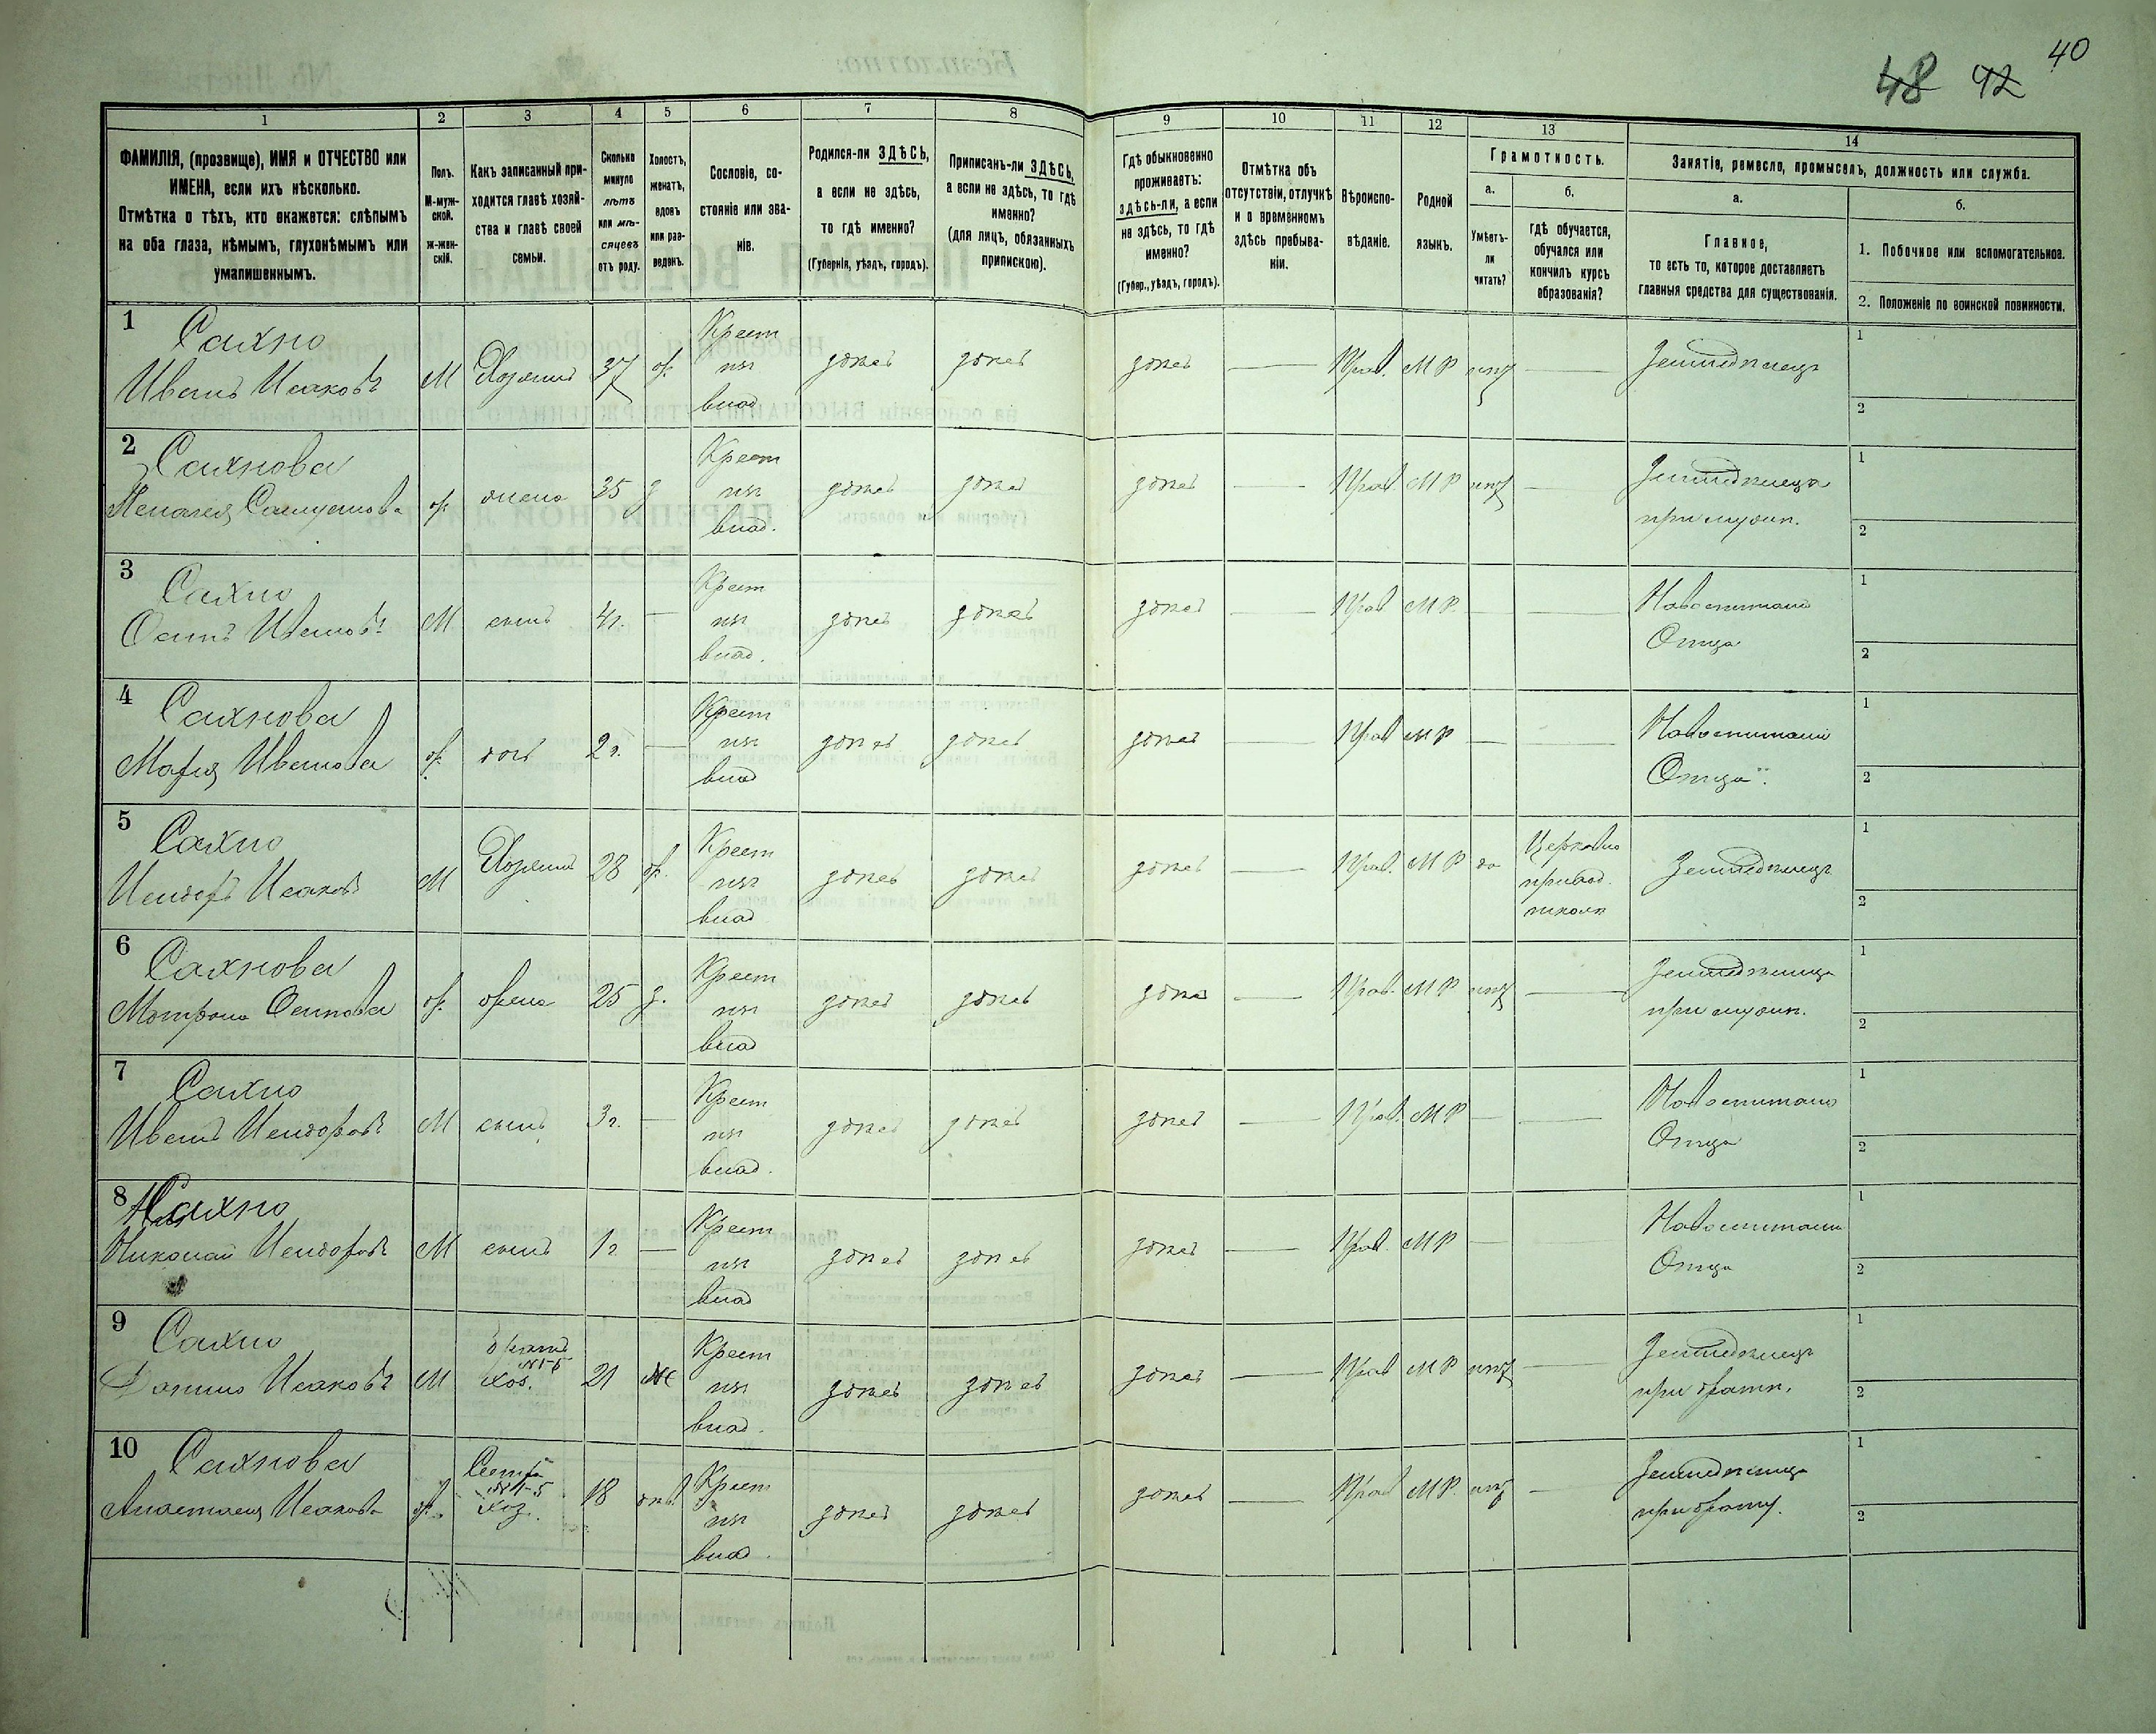 48 42 40
1 2 3 4 5 6 7 8 9 10 11 12 13 14
ФАМИЛІЯ, (прозвище), ИМЯ и ОТЧЕСТВО или
ИМЕНА, если ихъ нѣсколько.
Отмѣтка о тѣхъ, кто окажется: слѣпымъ
на оба глаза, нѣмымъ, глухонѣмымъ или
умалишеннымъ.
Полъ.
М-муж-
ской.
ж-жен-
скій.
Какъ записанный при-
ходится главѣ хозяй-
ства и главѣ своей
семьи.
Сколько
минуло
лѣтъ
или мѣ-
сяцевъ
отъ роду.
Холостъ,
женатъ,
вдовъ
или раз-
веденъ.
Сословіе, со-
стояніе или зва-
ніе.
Родился-ли ЗДѢСЬ,
а если не здѣсь,
то гдѣ именно?
(Губернія, уѣздъ, городъ).
Приписанъ-ли ЗДѢСЬ,
а если не здѣсь, то гдѣ
именно?
(для лицъ, обязанныхъ
припискою).
Гдѣ обыкновенно
проживаетъ:
здѣсь-ли, а если
не здѣсь, то гдѣ
именно?
(Губер., уѣздъ, городъ).
Отмѣтка объ
отсутствіи, отлучкѣ
и о временномъ
здѣсь пребыва-
ніи.
Вѣроиспо-
вѣданіе.
Родной
языкъ.
Грамотность.
а.
Умѣетъ-
ли
читать?
б.
гдѣ обучается,
обучался или
кончилъ курсъ
образованія?
Занятіе, ремесло, промыселъ, должность или служба.
а.
Главное,
то есть то, которое доставляетъ
главныя средства для существованія.
б.
1. Побочное или вспомогательное.
2. Положеніе по воинской повинности.
1 Сахно
Иванъ Исаковъ М Хозяинъ 37 ж. Крест изъ влад здесь здесь здесь — Прав. М Р нѣт — Земледелецъ
1
2
2 Сахнова
ж. жена 35 з Крест изъ влад. здесь здесь здесь — Прав. М Р нѣт —
при мужѣ.
1
2
3 Сахно
Осипъ Ивановъ М сынъ 4г. — Крест изъ влад. здесь здесь здесь — Прав М Р —
Отца
1
2
4 Сахнова
Марія Иванова ж. дочь 2г. — Крест изъ влад здесь здесь здесь — Прав М Р — —
Отца
1
2
5 Сахно
Исидоръ Исаковъ М Хозяинъ 28 ж. Крест изъ влад здесь здесь здесь — Прав. М Р да Церковно приход. школѣ Земледелецъ
1
2
6 Сахнова
Мотрона Осипова ж. жена 25 з. Крест изъ влад здесь здесь здесь — Прав. М Р нѣт — Земледелица
при мужѣ.
1
2
7 Сахно
Иванъ Исидоровъ М сынъ 3г. — Крест изъ влад. здесь здесь здесь — Прав. М Р — —
Отца
1
2
8 Сахно
Николай Исидоровъ М сынъ 1г — Крест изъ влад здесь здесь здесь — Прав. М Р —
Отца
1
2
9 Сахно
Данило Исаковъ М братъ №1-5 хоз. 21 Крест изъ влад. здесь здесь здесь — Прав М Р нѣт — Земледелецъ
при братѣ.
1
2
10 Сахнова
Анастасія Исакова ж. Сестра №1-5 хоз. 18 дѣв. Крест изъ влад. здесь здесь здесь — Прав М Р. нѣт — Земледелица
при брату.
1
2